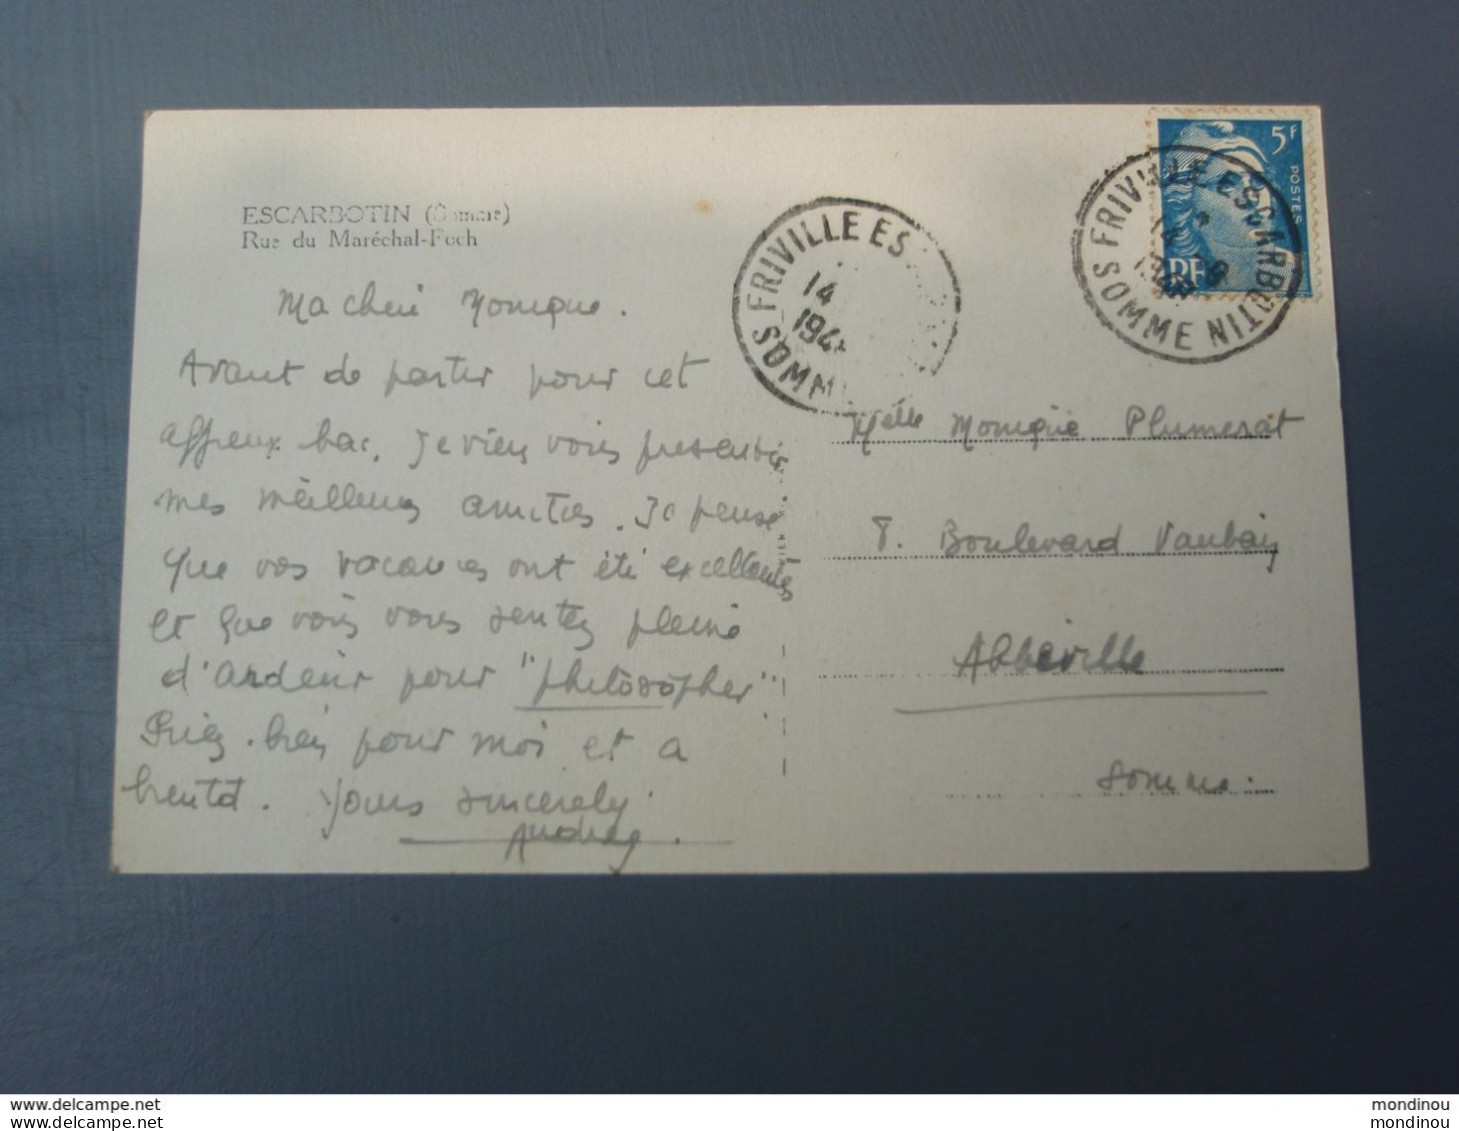 ESCARBOTIN (Somme)
Rue du Maréchal-Foch
Ma cheri Monique.
Avant de partir pour cet
affreux bac, je viens vous presenter
mes meilleurs amities. Je pense
que vos vacances ont été excellentes
et que vous vous sentez pleine
d'ardeur pour "philosopher"
Priez bien pour moi et a
bientot. Yours sincerely
Audrey.
FRIVILLE ES
14
194
SOMM
5F
POSTES
RF
FRIVILLE ESCARBOTIN
SOMME
Melle Monique Plumerat
8. Boulevard Vauban
Abbeville
Somme.
mondinou
mondinou
mondinou
mondinou